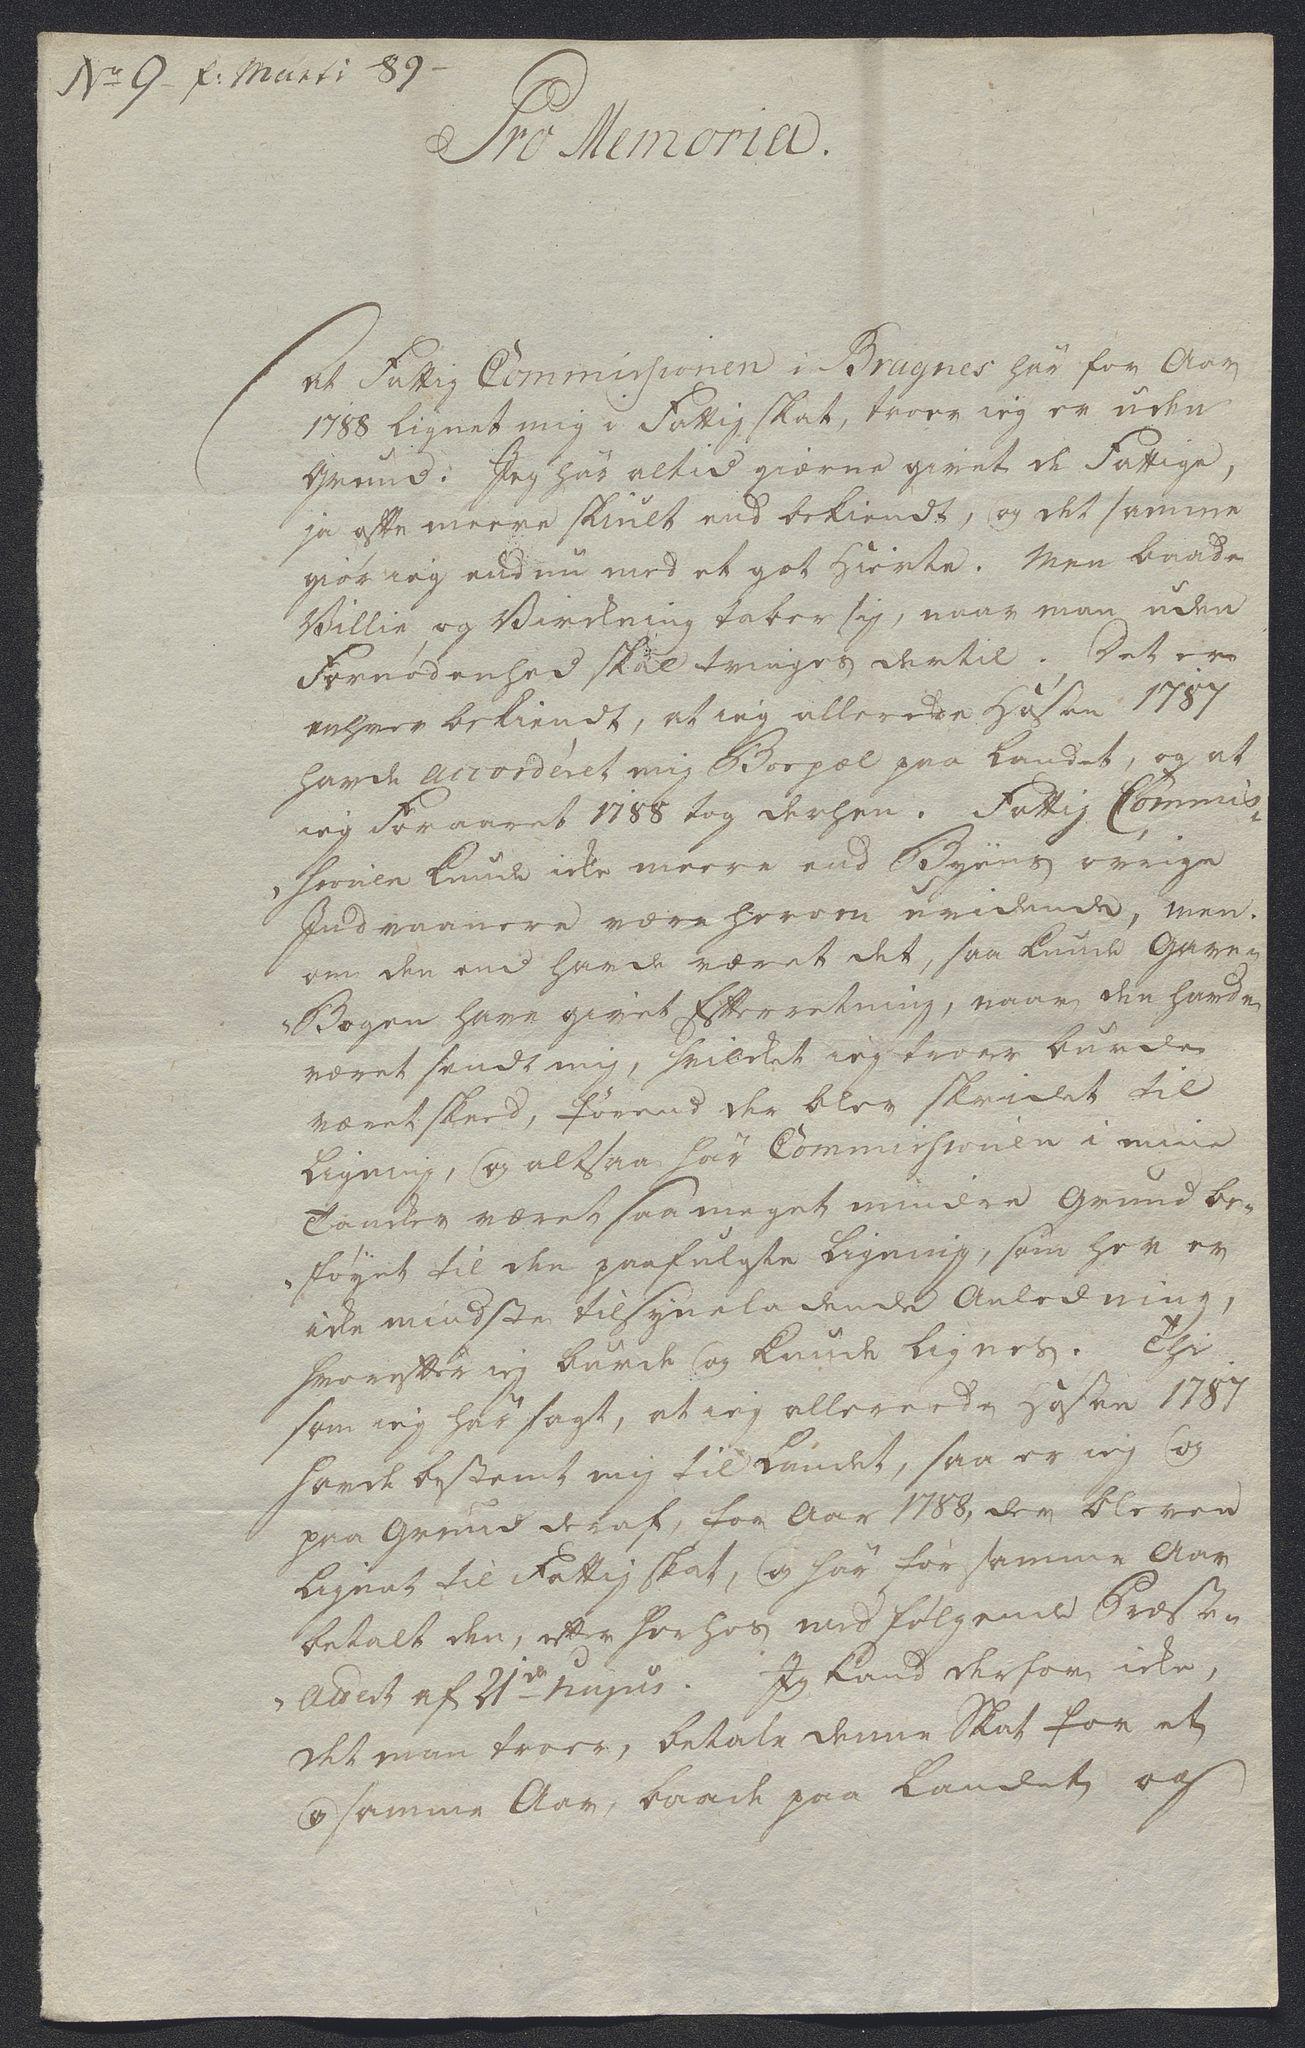 No 9 f: Marti 89
Pro Memoria.
At Fattig Commissionen i Bragnes har for Aar
1788 lignet mig i Fattig skat, troer ieg er uden
Grund. Jeg har altid gierne givet de Fattige,
ja ofte meere skiult end bekiendt, og det samme
giør ieg endnu med et got Hierte. Men baade
Villie og Virkning taber sig, naar man uden
Fornødenhed skal tvinges dertil. Det er
enhver bekiendt, at ieg allerede Høsten 1787
havde accorderet mig Boepæl paa Landet, og at
ieg Foraaret 1788 tog derhen. Fattig Commis-
sionen kunde ikke meere end Byens øvrige
Indvaanere være herom uvidende, men
om den end havde været det, saa kunde Gave-
Bogen have givet Efterretning, naar den havde
været sendt mig, hvilket ieg troer burde
været skeed, førend der blev skridet til
Ligning, og altsaa har Commissionen i mine
Tanker været saa meget mindre Grund be-
føyet til den paafulgte Ligning, som her er
ikke mindste tilsyneladende Anledning,
hvorefter ieg burde og kunde lignes. Thi
som ieg har sagt, at ieg allereede Høsten 1787
havde bestemt mig til Landet, saa er ieg og
paa Grund deraf, for Aar 1788, der bleven
lignet til Fattig skat, og har for samme Aar
betalt den, efter hoshos medfølgende Præste-
Attest af 21de hujus. Jeg kand derfor ikke,
det man troer, betale denne Skat for et
og samme Aar, baade paa Landet og